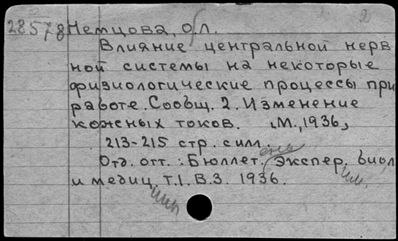 28578 Немцова, О.Л.
Влияние центральной нерв
ной системы на некоторые
физиологические процессы при
работе. Сообщ. 2. Изменение
кожных токов. М., 1936,
213-215 стр. с илл.
Отд. отт.: Бюллет. Экспер. биол
и медиц. Т.I. В.3. 1936.